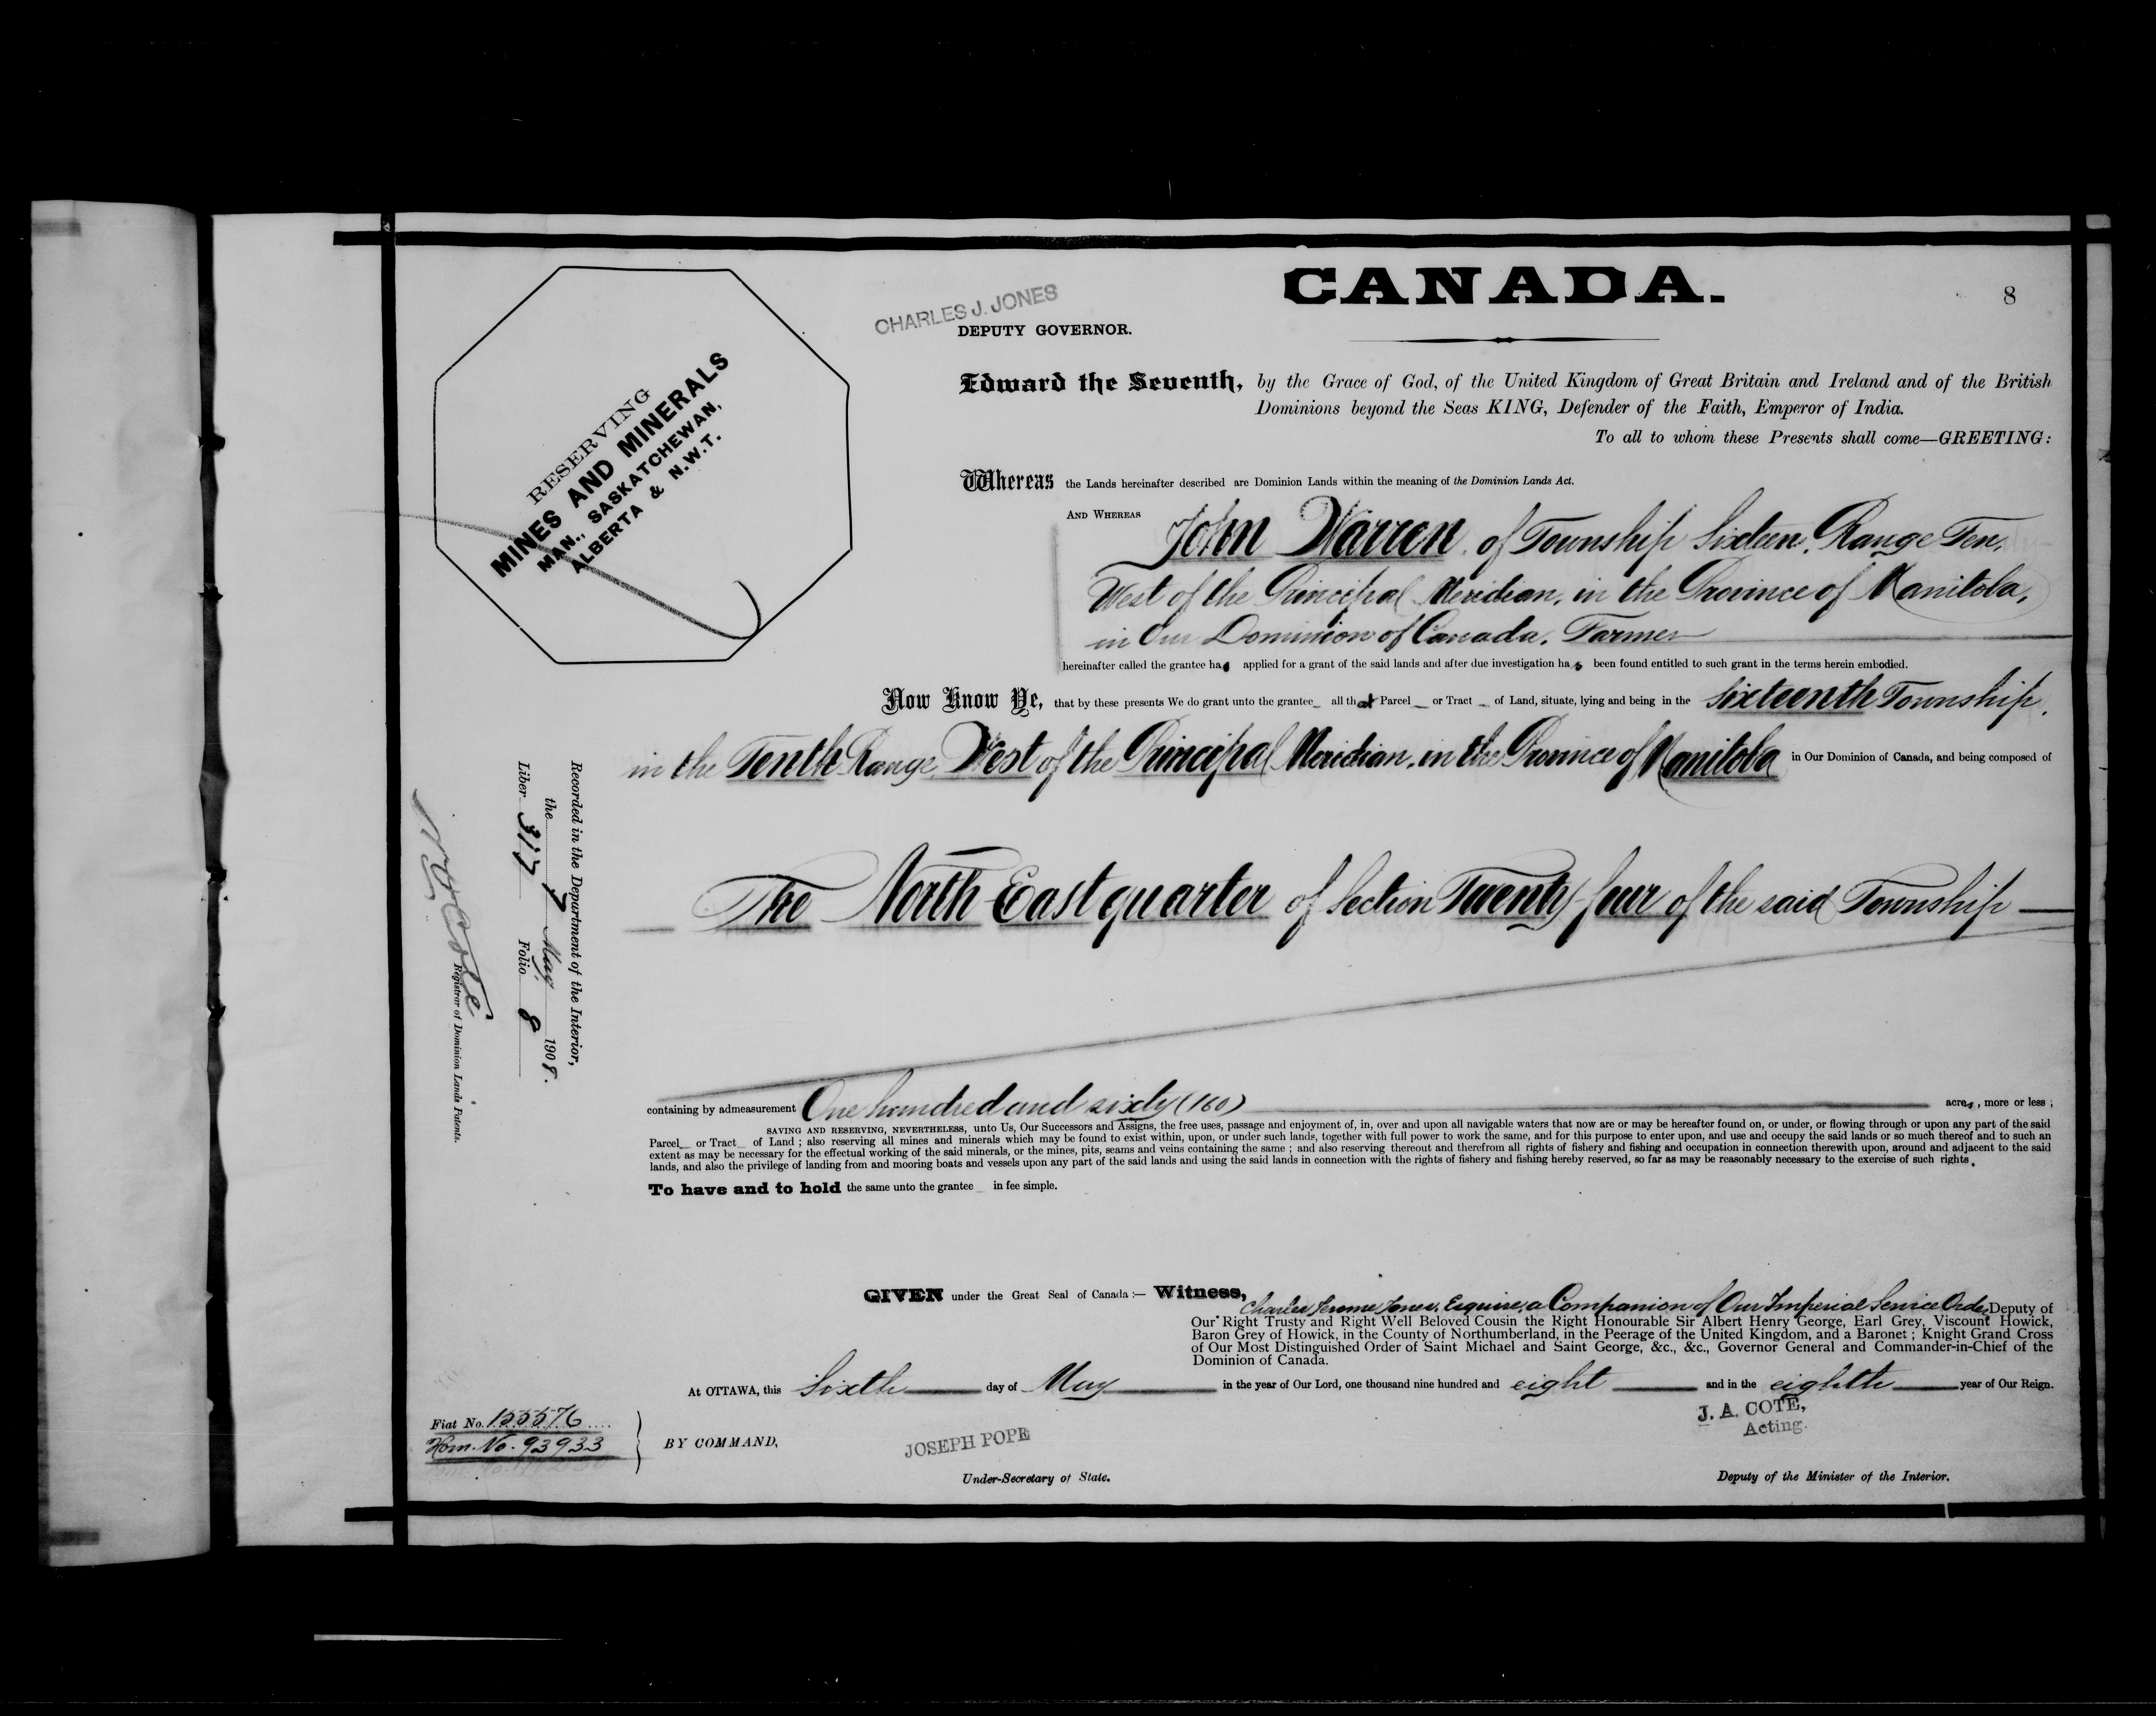 CANADA.
8
CHARLES J. JONES
DEPUTY GOVERNOR.
RESERVING
MINES AND MINERALS
MAN., SASKATCHEWAN,
ALBERTA & N.W.T.
Edward the Seventh, by the Grace of God, of the United Kingdom of Great Britain and Ireland and of the British
Dominions beyond the Seas KING, Defender of the Faith, Emperor of India.
To all to whom these Presents shall come—GREETING:
Whereas the Lands hereinafter described are Dominion Lands within the meaning of the Dominion Lands Act.
AND WHEREAS John Warren, of Township Sixteen, Range Ten,
West of the Principal Meridian, in the Province of Manitoba,
in Our Dominion of Canada, Farmer
hereinafter called the grantee has applied for a grant of the said lands and after due investigation has been found entitled to such grant in the terms herein embodied.
Now Know Ye, that by these presents We do grant unto the grantee all that Parcel or Tract of Land, situate, lying and being in the Sixteenth Township,
in the Tenth Range West of the Principal Meridian, in the Province of Manitoba in Our Dominion of Canada, and being composed of
The North East quarter of Section Twenty-four of the said Township
containing by admeasurement One hundred and sixty (160) acres, more or less ;
SAVING AND RESERVING, NEVERTHELESS, unto Us, Our Successors and Assigns, the free uses, passage and enjoyment of, in, over and upon all navigable waters that now are or may be hereafter found on, or under, or flowing through or upon any part of the said
Parcel or Tract of Land ; also reserving all mines and minerals which may be found to exist within, upon, or under such lands, together with full power to work the same, and for this purpose to enter upon, and use and occupy the said lands or so much thereof and to such an
extent as may be necessary for the effectual working of the said minerals, or the mines, pits, seams and veins containing the same ; and also reserving thereout and therefrom all rights of fishery and fishing and occupation in connection therewith upon, around and adjacent to the said
lands, and also the privilege of landing from and mooring boats and vessels upon any part of the said lands and using the said lands in connection with the rights of fishery and fishing hereby reserved, so far as may be reasonably necessary to the exercise of such rights.
To have and to hold the same unto the grantee in fee simple.
Recorded in the Department of the Interior,
the 7 May 1908.
Liber 317 Folio 8
N. O. Coté
Registrar of Dominion Lands Patents.
GIVEN under the Great Seal of Canada :— Witness,
Charles Jerome Jones, Esquire, a Companion of Our Imperial Service Order, Deputy of
Our Right Trusty and Right Well Beloved Cousin the Right Honourable Sir Albert Henry George, Earl Grey, Viscount Howick,
Baron Grey of Howick, in the County of Northumberland, in the Peerage of the United Kingdom, and a Baronet ; Knight Grand Cross
of Our Most Distinguished Order of Saint Michael and Saint George, &c., &c., Governor General and Commander-in-Chief of the
Dominion of Canada.
At OTTAWA, this Sixth day of May in the year of Our Lord, one thousand nine hundred and eight and in the eighth year of Our Reign.
Fiat No. 155576
Hom. No. 93933
BY COMMAND,
JOSEPH POPE
Under-Secretary of State.
J. A. COTE,
Acting.
Deputy of the Minister of the Interior.